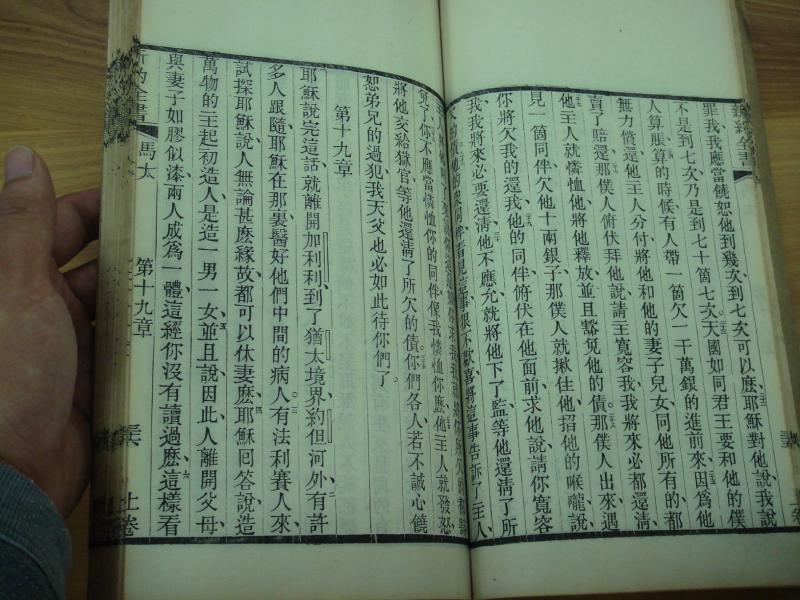 罪我我應當饒恕他到幾次到七次可以麽、耶穌對他說我說
不是到七次乃是到七十箇七次。天國如同君王要和他的僕
人算賬、算的時候有人帶一箇欠一千萬銀的進前來、因爲他
無力償還、他主人分付將他和他的妻子兒女、同他所有的、都
賣了賠還、那僕人俯伏拜他說、請主寬容我、我將來必都還淸
他主人就憐恤他、將他釋放、並且豁免他的債。那僕人出來、遇
見一箇同伴、欠他十兩銀子、那僕人就揪住他、掐他的喉嚨說
你將欠我的還我、他的同伴俯伏在他面前求他說、請你寬容
我、我將來必要還淸、他不應允、就將他下了監、等他還淸了所
欠的債、他的衆同伴看見這事很不歡喜、將這事告訴了主人
免了你、不應當憐恤你的同伴像我憐恤你麽、他主人就發怒
將他交給獄官、等他還淸了所欠的債、你們各人若不誠心饒
恕弟兄的過犯、我天父也必如此待你們了。
第十九章
耶穌說完這話、就離開加利利、到了猶太境界、約但河外、有許
多人跟隨耶穌、在那裏醫好他們中間的病人。有法利賽人來
試探耶穌說、人無論甚麽緣故都可以休妻麽、耶穌回答說、造
萬物的主、起初造人、是造一男一女、並且說、因此人離開父母
與妻子如膠似漆、兩人成爲一體、這經你沒有讀過麽、這樣看
新約全書
馬太
第十九章
上卷